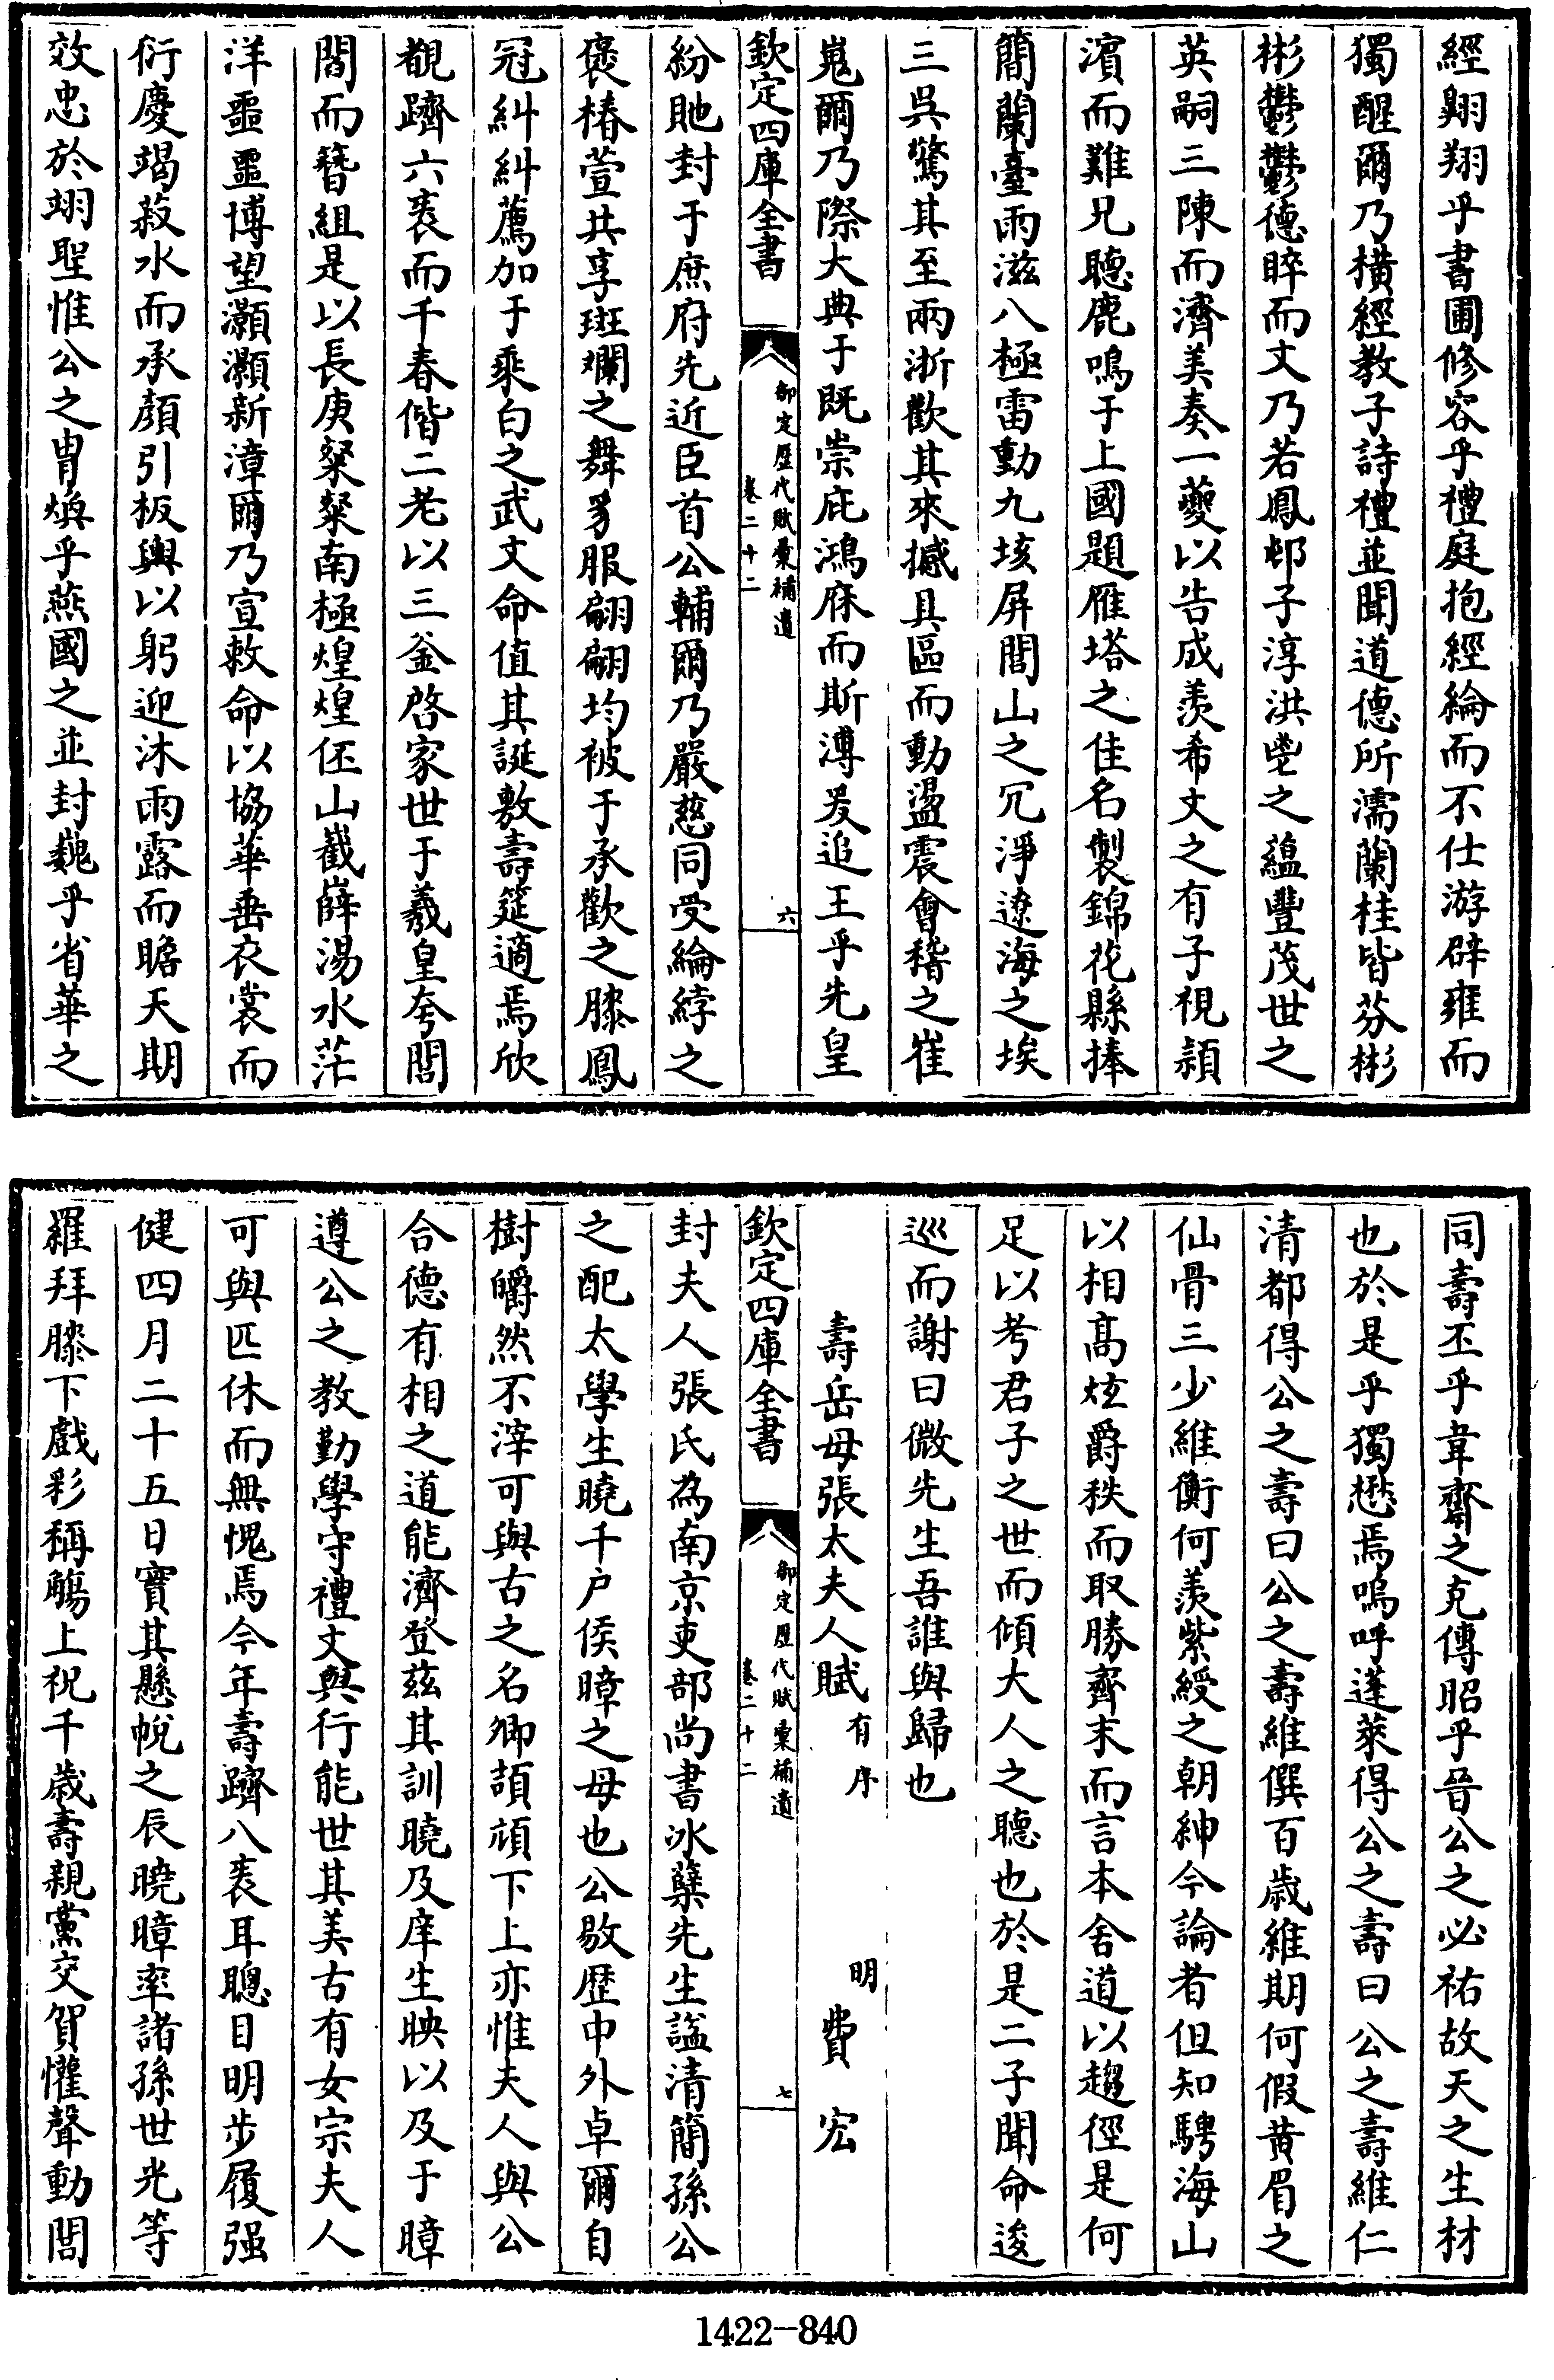 經翺翔乎書圃修容乎禮庭抱經綸而不仕游辟雍而
獨醒爾乃橫經教子詩禮並聞道德所濡蘭桂皆芬彬
彬鬱鬱德晬而文乃若鳳邨子淳洪造之蘊豐茂世之
英嗣三陳而濟美奏一夔以告成羨希文之有子視潁
濱而難兄聽鹿鳴于上國題雁塔之佳名製錦花縣捧
簡蘭臺雨滋八極雷動九垓屏閭山之冗淨遼海之埃
三吳驚其至兩浙歡其來撼具區而動盪震會稽之崔
嵬爾乃際大典于既崇庇鴻庥而斯溥爰追王乎先皇
欽定四庫全書
御定歴代賦彙補遺
卷二十二
六
紛貤封于庶府先近臣首公輔爾乃嚴慈同受綸綍之
褒椿萱共享斑斕之舞豸服翩翩均被于承歡之膝鳳
冠糾糾薦加于乘白之武文命值其誕敷壽筵適焉欣
覩躋六袠而千春偕二老以三釜啓家世于羲皇夸閭
閻而簪組是以長庚粲粲南極煌煌伾山巀嶭湯水茫
洋噩噩博望灝灝新漳爾乃宣敕命以協華垂衣裳而
衍慶竭菽水而承顏引板輿以躬迎沐雨露而瞻天期
效忠於翊聖惟公之胄煥乎燕國之並封巍乎省華之
同壽丕乎韋齋之克傳昭乎晉公之必祐故天之生材
也於是乎獨懋焉嗚呼蓬萊得公之壽曰公之壽維仁
清都得公之壽曰公之壽維僎百歲維期何假黄眉之
仙骨三少維衡何羨紫綬之朝紳今論者但知騁海山
以相髙炫爵秩而取勝齊末而言本舍道以趨徑是何
足以考君子之世而傾大人之聽也於是二子聞命逡
巡而謝曰微先生吾誰與歸也
壽岳母張太夫人賦有序
明費宏
欽定四庫全書
御定歴代賦彙補遺
卷二十二
七
封夫人張氏為南京吏部尚書冰蘗先生諡清簡孫公
之配太學生曉千户侯暲之母也公敭歴中外卓爾自
樹皭然不滓可與古之名卿頡頏下上亦惟夫人與公
合德有相之道能濟登兹其訓曉及庠生映以及于暲
遵公之教勤學守禮文與行能世其美古有女宗夫人
可與匹休而無愧焉今年壽躋八袠耳聰目明步履强
健四月二十五日實其懸帨之辰曉暲率諸孫世光等
羅拜膝下戲彩稱觴上祝千歲壽親黨交賀懽聲動閭
1422-840